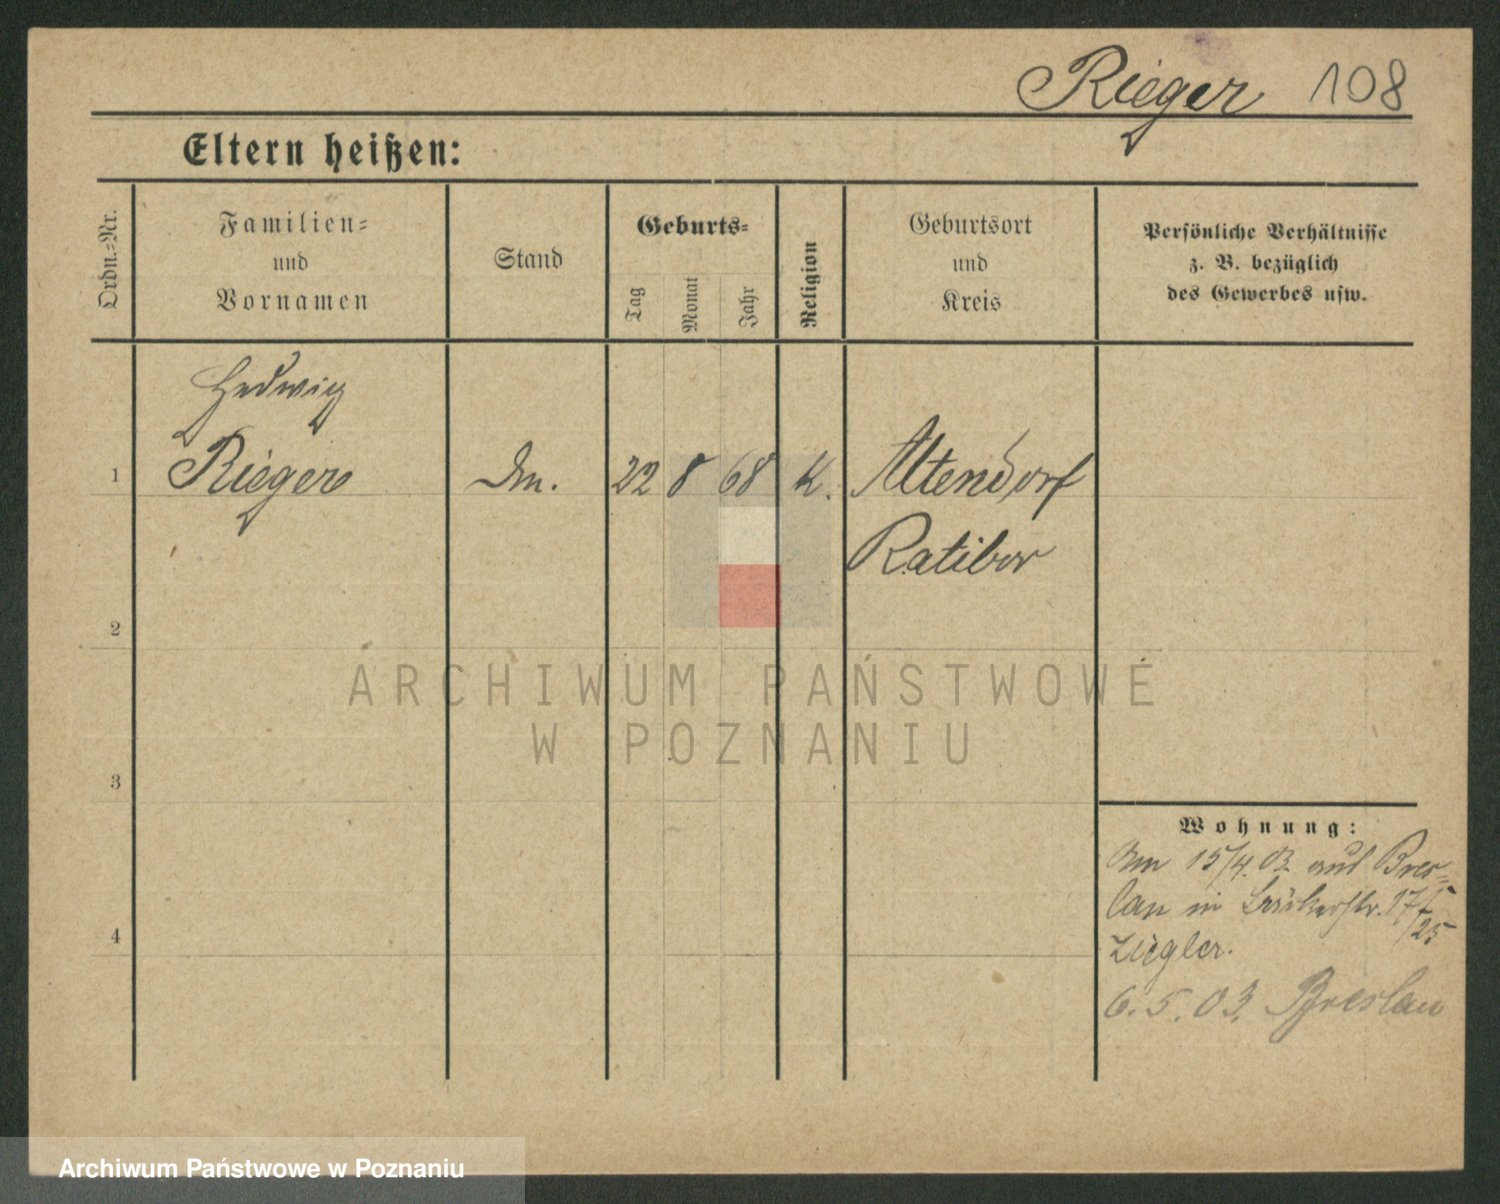 Rieger 108
Eltern heißen:
Ordn.=Nr.
Familien=
und
Vornamen
Stand
Geburts=
Tag
Monat
Jahr
Religion
Geburtsort
und
Kreis
Persönliche Verhältnisse
z. B. bezüglich
des Gewerbes usw.
Hedwig
1 Rieger 22 8 68 K. Altendorf
Ratibor
2
3
4
Wohnung:
Am 15/4. 03. aus Bres=
lau in 17/
/25
Ziegler.
6. 5. 03. Breslau
ARCHIWUM PAŃSTWOWE
W POZNANIU
Archiwum Państwowe w Poznaniu